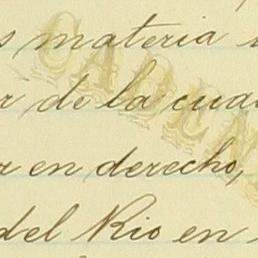 s materia
r de la cua
r en derecho,
del Rio en
CADENA